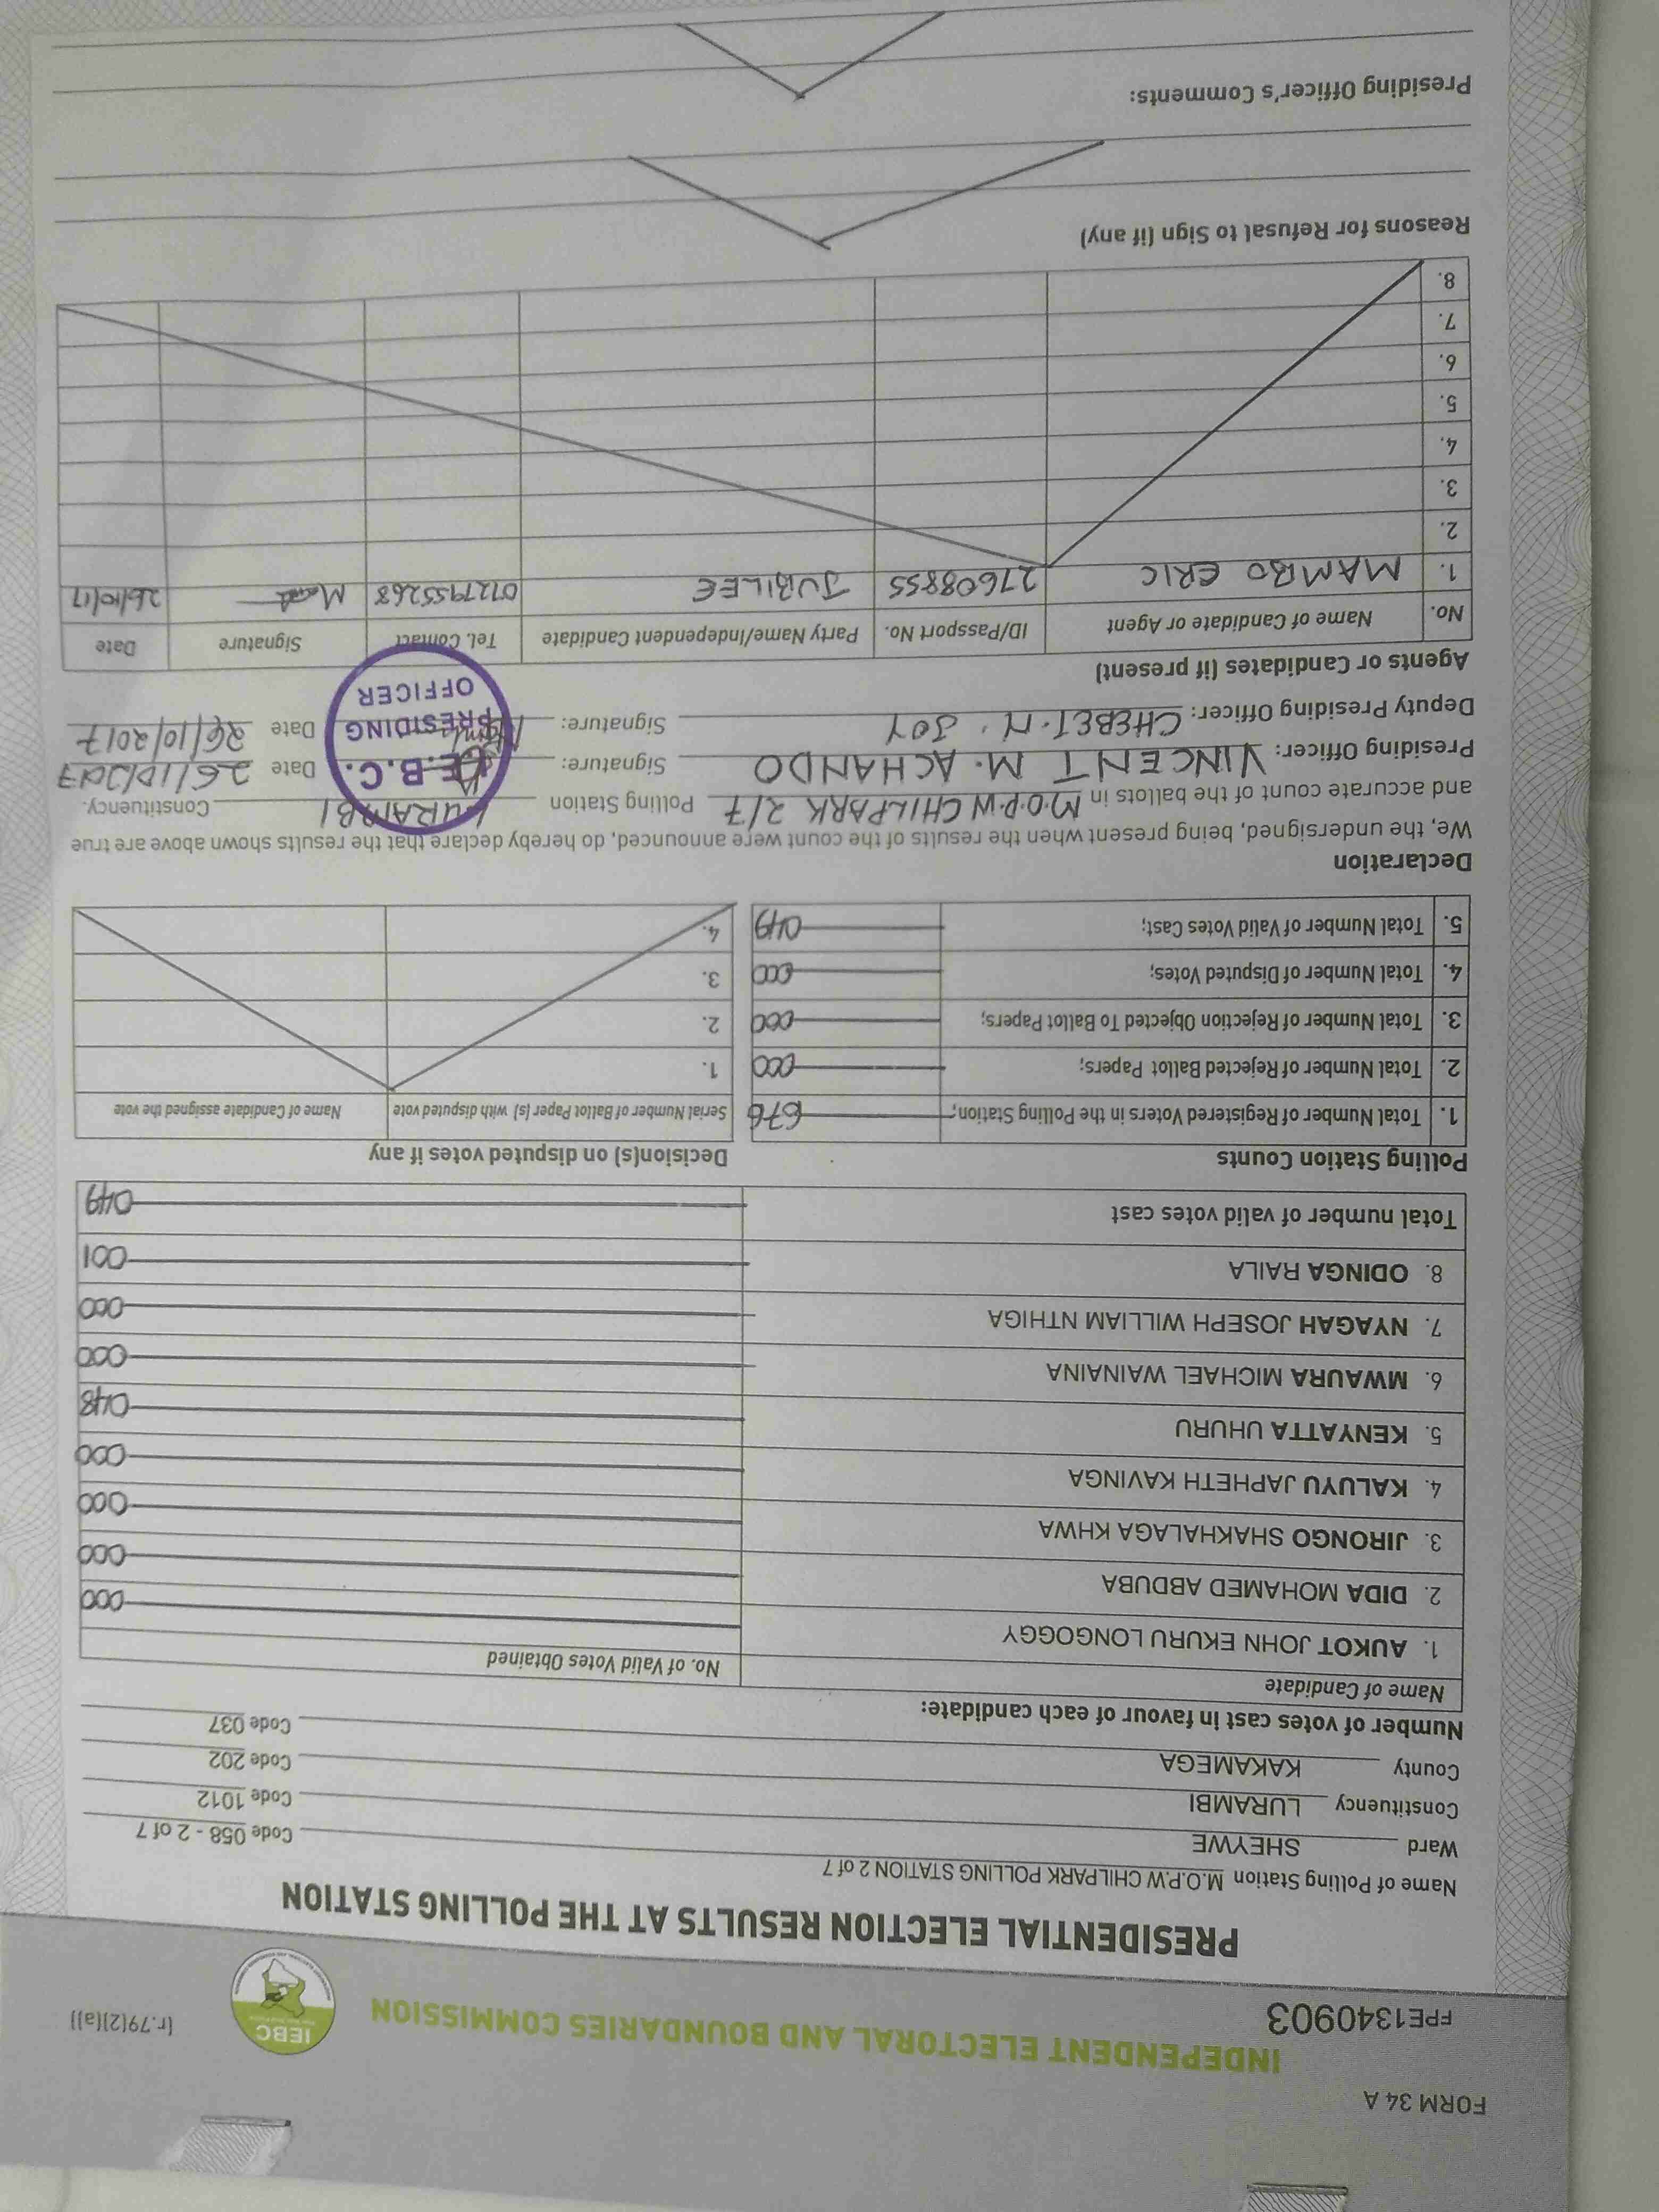 FORM 34 A
INDEPENDENT ELECTORAL AND BOUNDARIES COMMISSION
IEBC
(r.79(2)(a))
FPE1340903
PRESIDENTIAL ELECTION RESULTS AT THE POLLING STATION
Name of Polling Station M.O.P.W CHILPARK POLLING STATION 2 of 7
Ward SHEYWE Code 058 - 2 of 7
Constituency LURAMBI Code 1012
County KAKAMEGA Code 202
Code 037
Number of votes cast in favour of each candidate:
Name of Candidate No. of Valid Votes Obtained
1. AUKOT JOHN EKURU LONGOGGY 000
2. DIDA MOHAMED ABDUBA 000
3. JIRONGO SHAKHALAGA KHWA 000
4. KALUYU JAPHETH KAVINGA 000
5. KENYATTA UHURU 048
6. MWAURA MICHAEL WAINAINA 000
7. NYAGAH JOSEPH WILLIAM NTHIGA 000
8. ODINGA RAILA 001
Total number of valid votes cast 049
Polling Station Counts
1. Total Number of Registered Voters in the Polling Station; 676
2. Total Number of Rejected Ballot Papers; 000
3. Total Number of Rejection Objected To Ballot Papers; 000
4. Total Number of Disputed Votes; 000
5. Total Number of Valid Votes Cast; 049
Decision(s) on disputed votes if any
Serial Number of Ballot Paper (s) with disputed vote Name of Candidate assigned the vote
1.
2.
3.
4.
Declaration
We, the undersigned, being present when the results of the count were announced, do hereby declare that the results shown above are true
and accurate count of the ballots in M.O.P.W CHILPARK 2/7 Polling Station LURAMBI Constituency.
Presiding Officer: VINCENT M. ACHANDO Signature: Date 26/10/2017
Deputy Presiding Officer: CHEBET.M. JOY Signature: Date 26/10/2017
I.E.B.C.
PRESIDING
OFFICER
Agents or Candidates (if present)
No. Name of Candidate or Agent ID/Passport No. Party Name/Independent Candidate Tel. Contact Signature Date
1. MAMBO ERIC 27608855 JUBILEE 0727955268 26/10/17
2.
3.
4.
5.
6.
7.
8.
Reasons for Refusal to Sign (if any)
Presiding Officer's Comments: